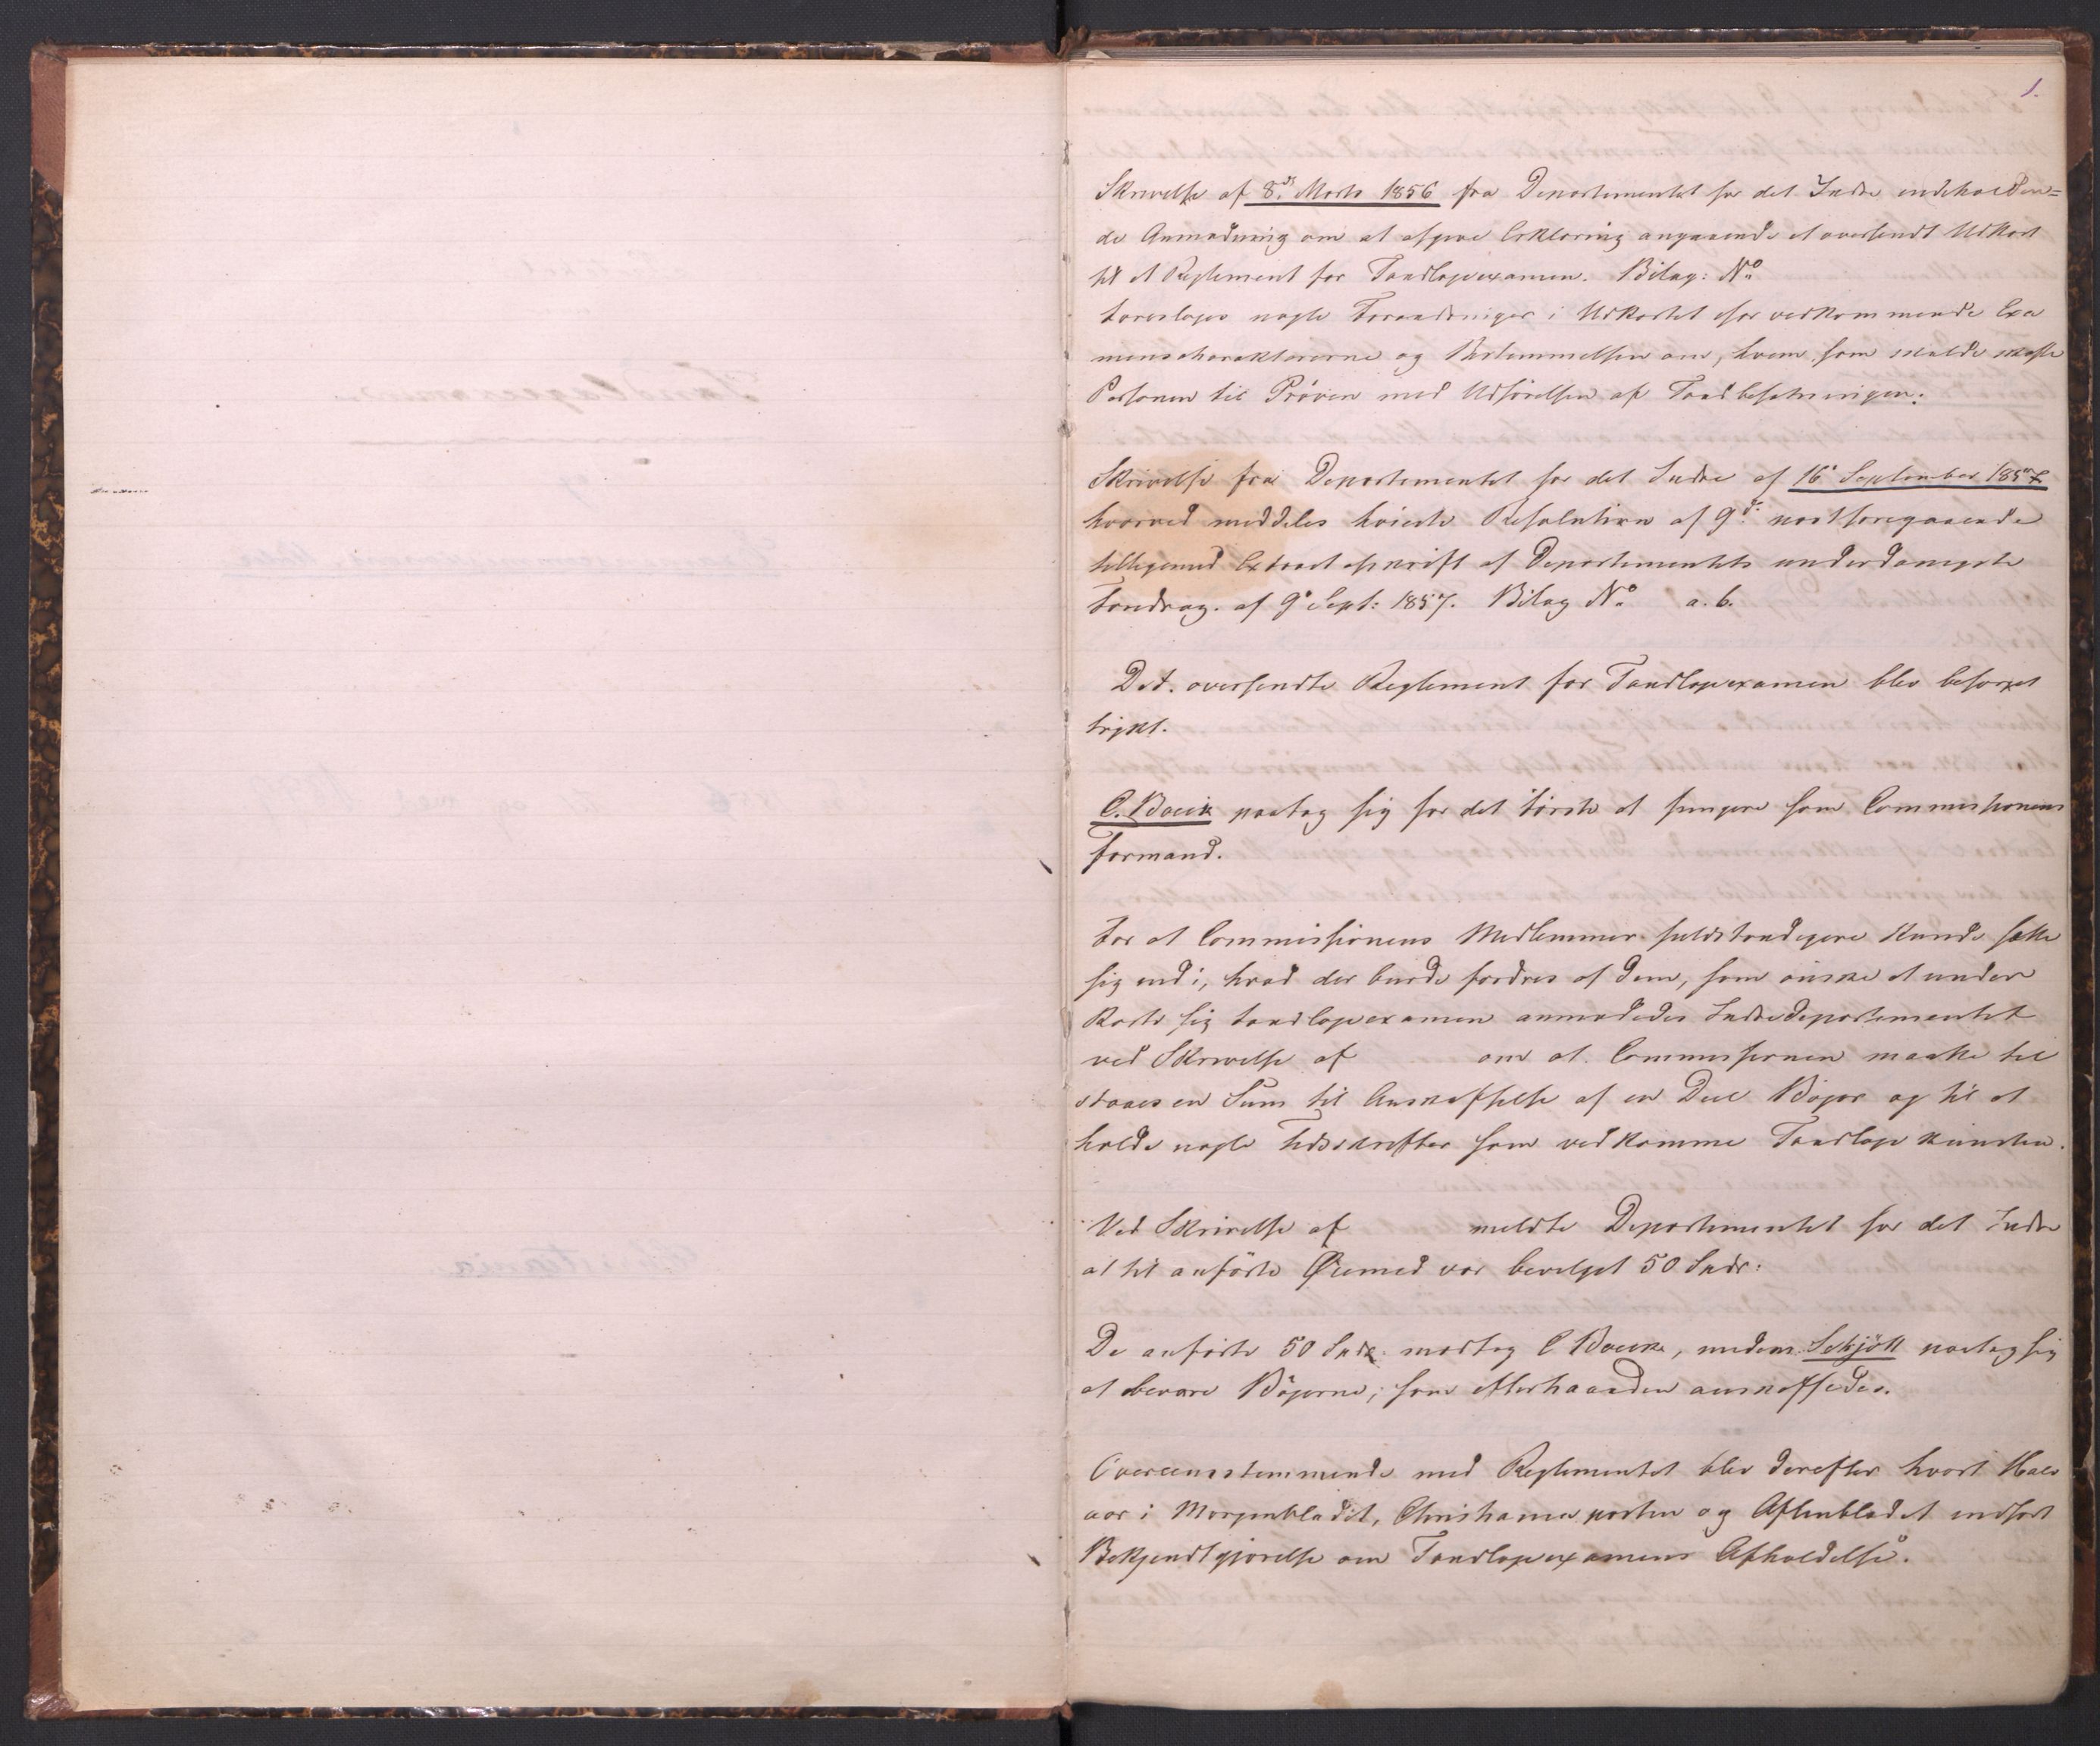 1.
Skrivelse af 8de Marts 1856 fra Departementet for det Indre indeholden=
de Anmodning om at afgive Erklæring angaaende et oversendt Udkast
til et Reglement for Tandlægeexamen. Bilag: No
Foresloges nogle Forandringer i Udkastet for vedkommende Exa
menscharaktererne og Bestemmelsen om, hvem som skulde skaffe
Personen til Prøven med Udførelsen af Tandbesætningen.
Skrivelse fra Departementet for det Indre af 16 September 1857
hvorved meddeles høieste Resolution af 9de næstforegaaende
tilligemed Extractafskrift af Departementets underdanigste
Foredrag af 9 Sept: 1857. Bilag No a. b.
Det oversendte Reglement for Tandlægeexamen blev besørget
trykt.
C. Boeck paatog sig for det første at fungere som Commissionens
Formand.
For at Commissionens Medlemmer fuldstændigere kunde sætte
sig ind i, hvad der burde fordres af dem, som ønske at under
kaste sig Tandlægeexamen anmodedes Indredepartementet
ved Skrivelse af om at Commissionen maatte til
staaes en Sum til Anskaffelse af en Deel Bøger og til at
holde nogle Tidsskrifter som vedkomme Tandlægekunsten.
Ved Skrivelse af meldte Departementet for det Indre
at til anførte Øiemed var bevilget 50 Spdr:
De anførte 50 Spdr. modtog C Boeck, medens Schjøtt paatog sig
at bevare Bøgerne, som efterhaanden anskaffedes.
Overeensstemmende med Reglementet blev derefter hvert Halv
aar i Morgenbladet, Christianiaposten og Aftenbladet indført
Bekjendtgjørelse om Tandlægeexamens Afholdelse.